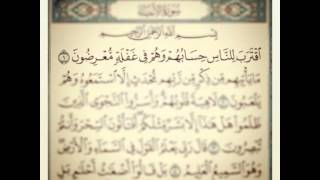 سورة الأنبياء
بسم الله الرحمن الرحيم
ٱقۡتَرَبَ لِلنَّاسِ حِسَابُهُمۡ وَهُمۡ فِي غَفۡلَةٖ مُّعۡرِضُونَ ١
مَا يَأۡتِيهِم مِّن ذِكۡرٖ مِّن رَّبِّهِم مُّحۡدَثٍ إِلَّا ٱسۡتَمَعُوهُ وَهُمۡ
يَلۡعَبُونَ ٢ لَاهِيَةٗ قُلُوبُهُمۡۗ وَأَسَرُّواْ ٱلنَّجۡوَى ٱلَّذِينَ
ظَلَمُواْ هَلۡ هَٰذَآ إِلَّا بَشَرٞ مِّثۡلُكُمۡۖ أَفَتَأۡتُونَ ٱلسِّحۡرَ وَأَنتُمۡ
تُبۡصِرُونَ ٣ قَالَ رَبِّي يَعۡلَمُ ٱلۡقَوۡلَ فِي ٱلسَّمَآءِ وَٱلۡأَرۡضِۖ
وَهُوَ ٱلسَّمِيعُ ٱلۡعَلِيمُ ٤ بَلۡ قَالُوٓاْ أَضۡغَٰثُ أَحۡلَٰمِۭ بَلِ